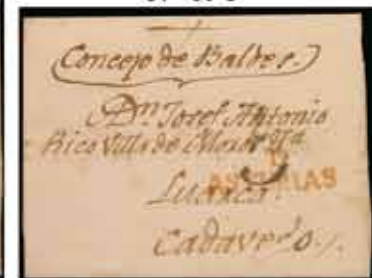 Concejo de Baldes.
A Dn Josef Antonio
Rico Villa de
Luarca.
ASTURIAS
Cadavedo.